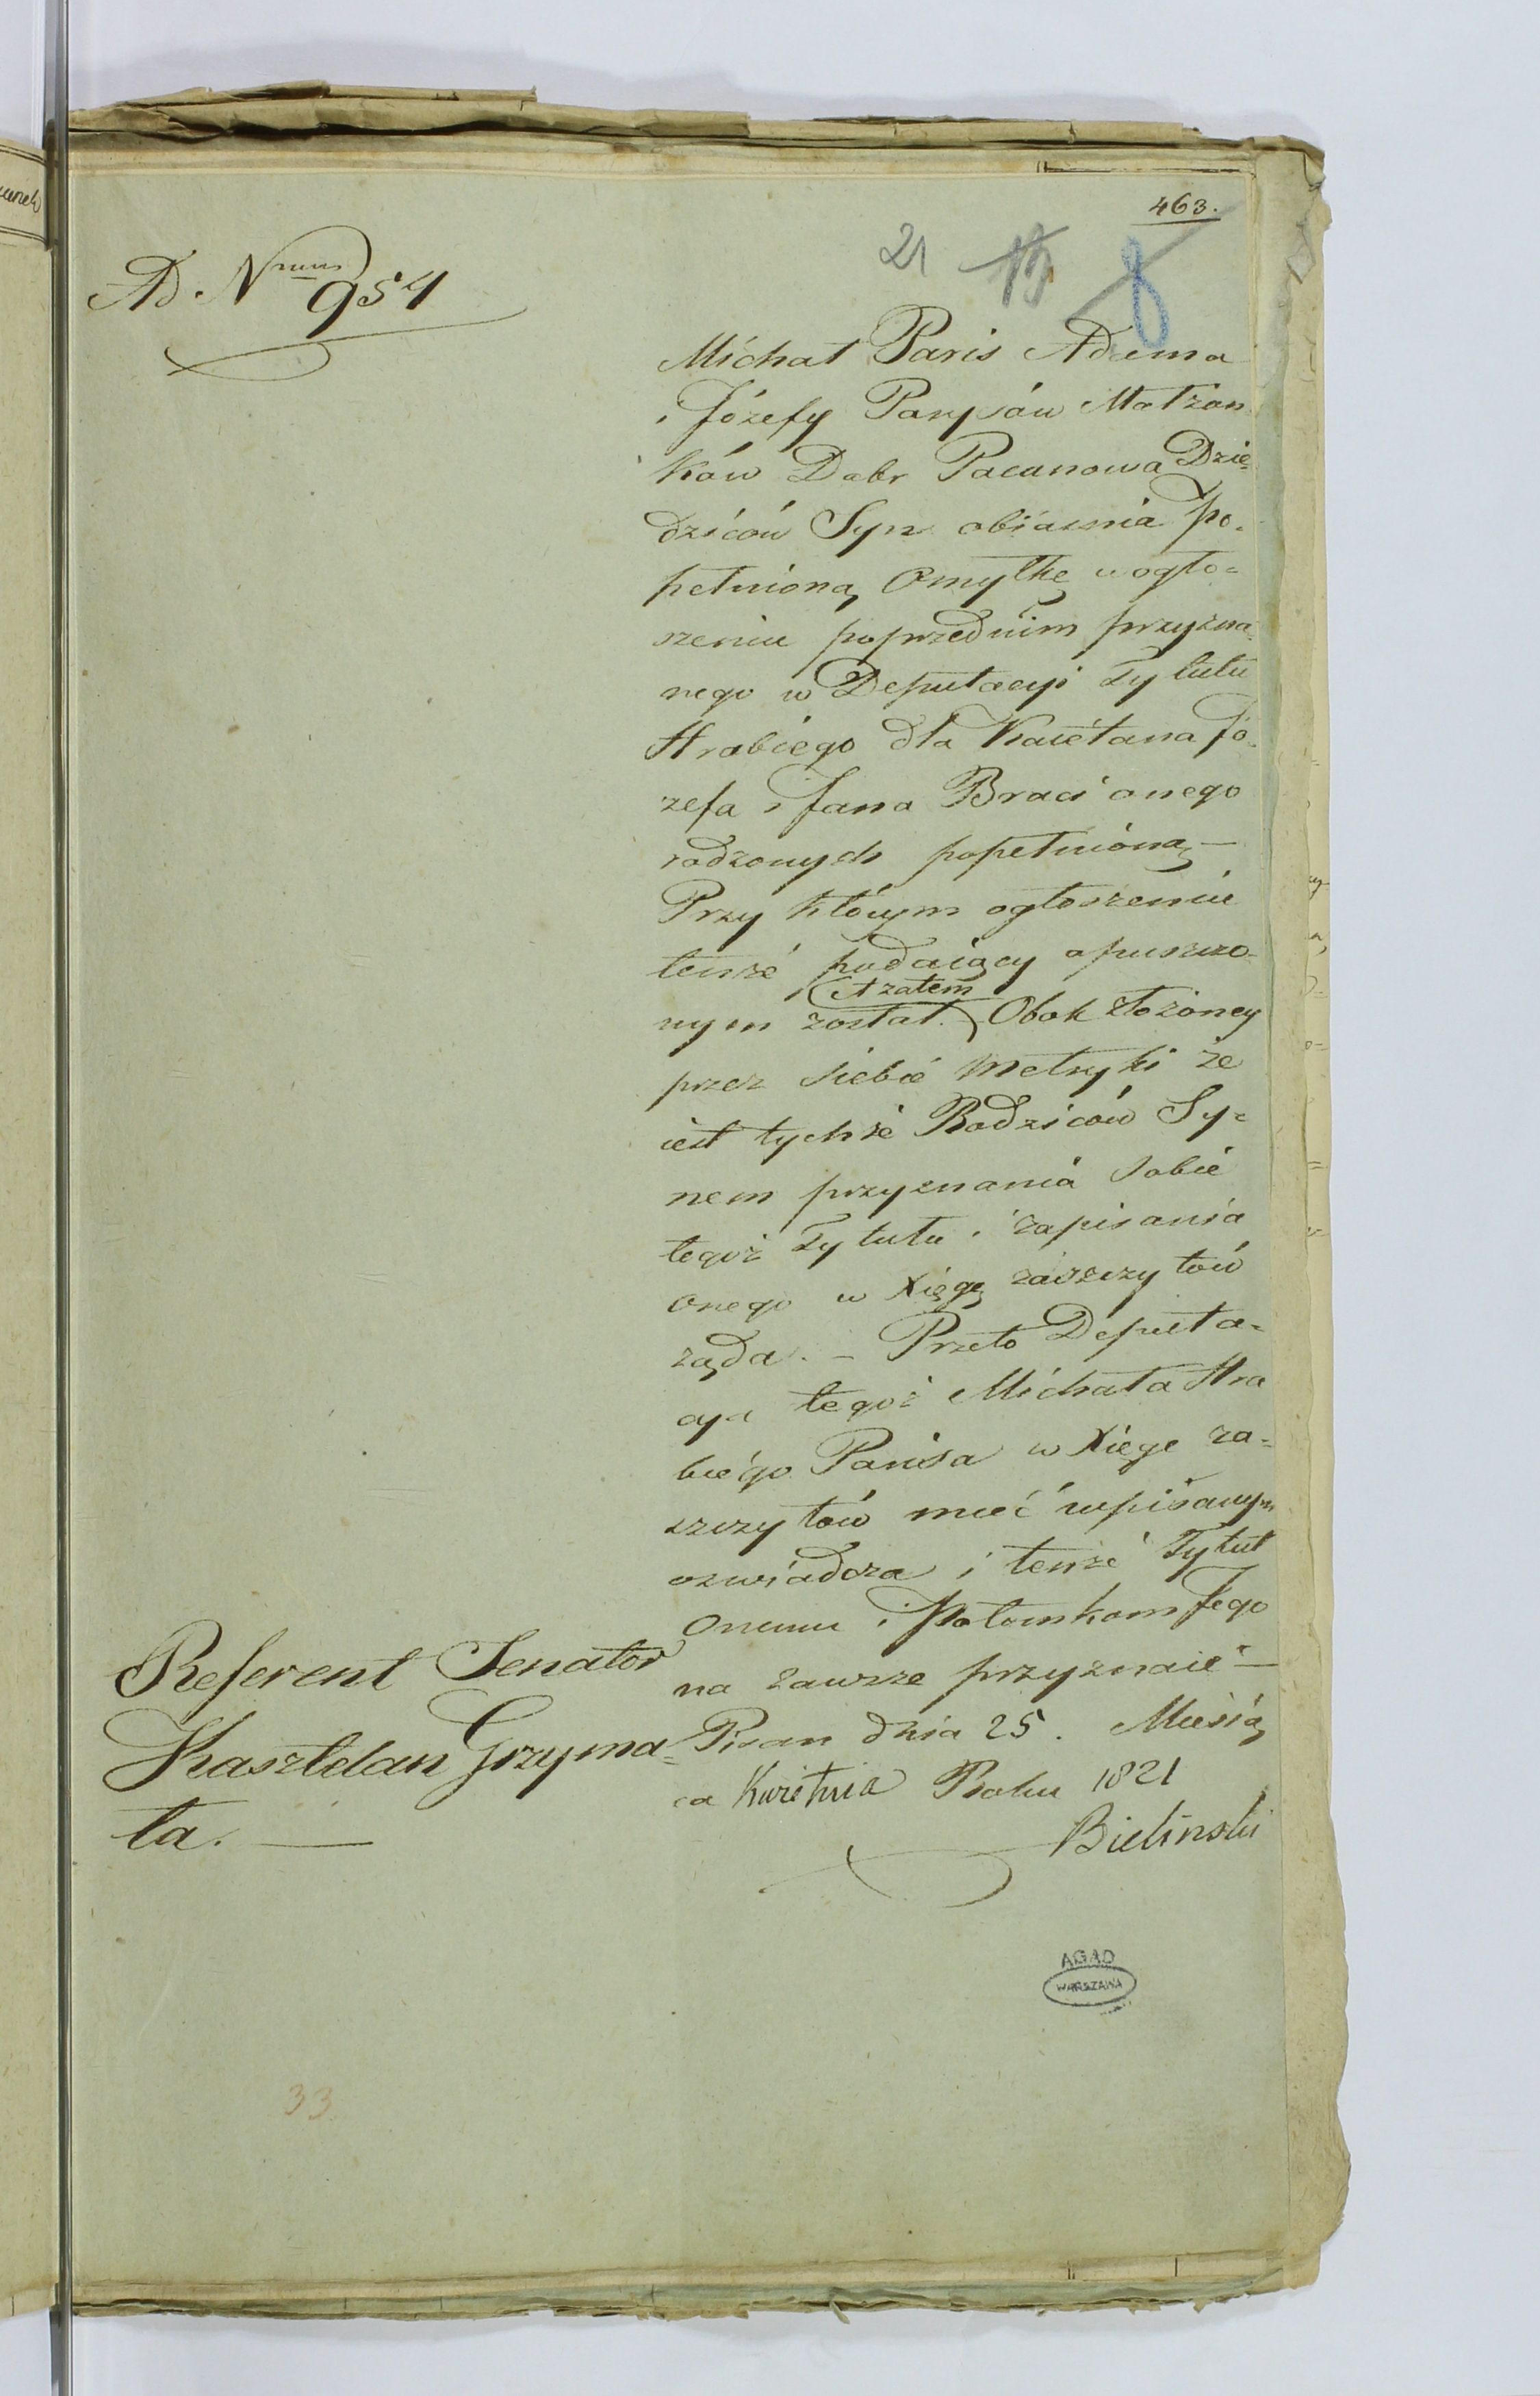 463.
21 19 8
Ad Nrum 954
Michał Paris Adama
i Józefy Parysów Małżon
ków Dobr Pacanowa Dzie-
dziców Syn obiasnia po-
pełnioną Omyłkę w ogło-
szeniu poprzednim przyzna-
nego w Deputacyi Tytułu
Hrabiego dla Kaietana Jó-
zefa i Jana Braci onego
rodzonych popełnioną —
Przy którym ogłoszeniu
tenże podaiący opuszczo-
A zatem
nym został. Obok złożoney
przez siebie Metryki że
iest tychże Rodziców Sy-
nem przyznania Sobie
tegoż Tytułu i zapisania
onego w Xięgę zaszczytów
ząda. — Przeto Deputa-
cya tegoż Michała Hra
biego Parisa w Xięge za-
szczytów mieć wpisanym
oswiadcza i tenże Tytuł
Onemu i Potomkom Jego
na zawsze przyznaie —
Pisan dnia 25. Miesią
ca Kwietnia Roku 1821
Bielinski
Referent Senator
Kasztelan Grzyma-
ła. —
AGAD
WARSZAWA
33